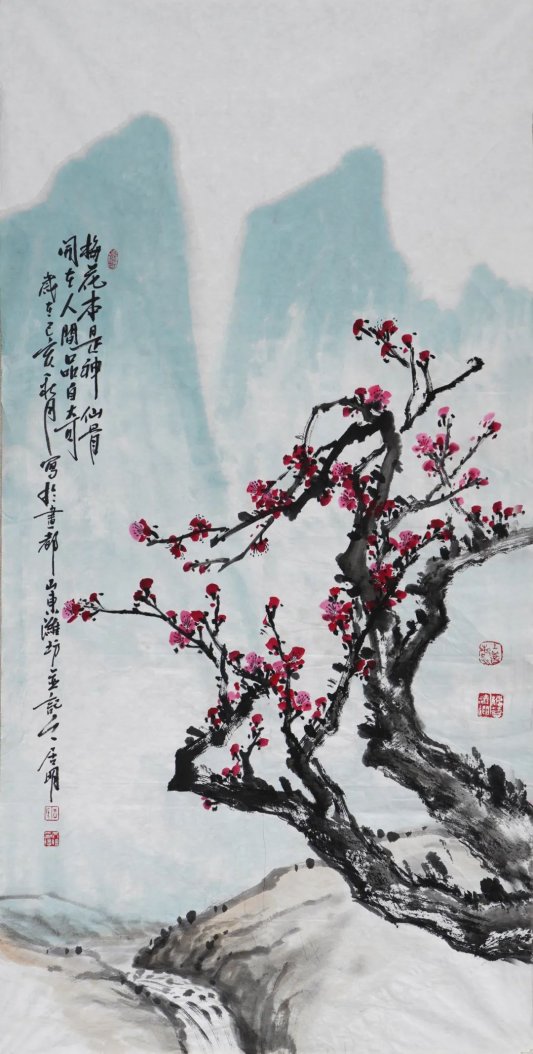 梅花本是神仙骨
開在人間品自奇
歲在己亥秋月寫於畫都山東濰坊並記
居明